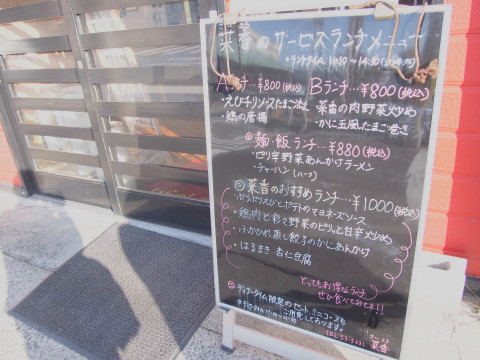 菜香のサービスランチメニュー
*ランチタイム 11:30~14:30
Aランチ…¥800(税込)
・えびチリソースたまご添え
・鶏の唐揚
Bランチ…¥800(税込)
・菜香の肉野菜炒め
・かに玉風たまご巻き
麺・飯ランチ…¥880(税込)
・ピリ辛野菜あんかけラーメン
・チャーハン(ハーフ)
菜香のおすすめランチ…¥1000(税込)
・ぷりぷりえびとポテトのマヨネーズソース
・鶏肉と彩々野菜のピリッと甘辛炒め
・ふかひれ蒸し餃子のかにあんかけ
・はるまき 杏仁豆腐
とってもお得なランチ
ぜひ食べてみてネ!!
ディナータイム限定のセット、ミニコースも
ご用意しております。
TEL 53-3231
菜香